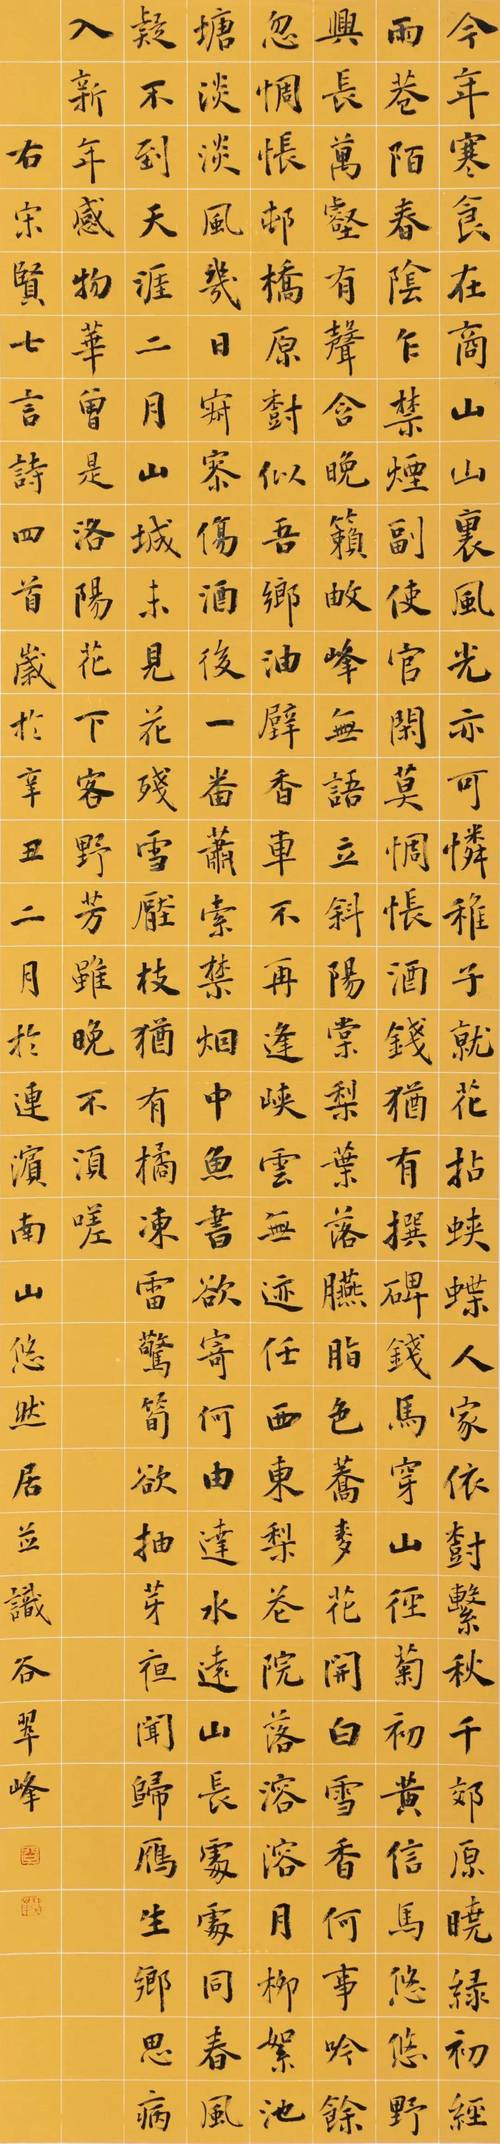 今年寒食在商山山裏風光亦可憐稚子就花拈蛺蝶人家依樹繫秋千郊原曉綠初經
雨巷陌春陰乍禁煙副使官閑莫惆悵酒錢猶有撰碑錢馬穿山徑菊初黃信馬悠悠野
興長萬壑有聲含晚籟數峰無語立斜陽棠梨葉落臙脂色蕎麥花開白雪香何事吟餘
忽惆悵邨橋原樹似吾鄉油壁香車不再逢峽雲無迹任西東梨花院落溶溶月柳絮池
塘淡淡風幾日寂寥傷酒後一番蕭索禁烟中魚書欲寄何由達水遠山長處處同春風
疑不到天涯二月山城未見花殘雪壓枝猶有橘凍雷驚筍欲抽芽夜聞歸雁生鄉思病
入新年感物華曾是洛陽花下客野芳雖晚不須嗟
右宋賢七言詩四首歲於辛丑二月於連濱南山悠然居並識谷翠峰